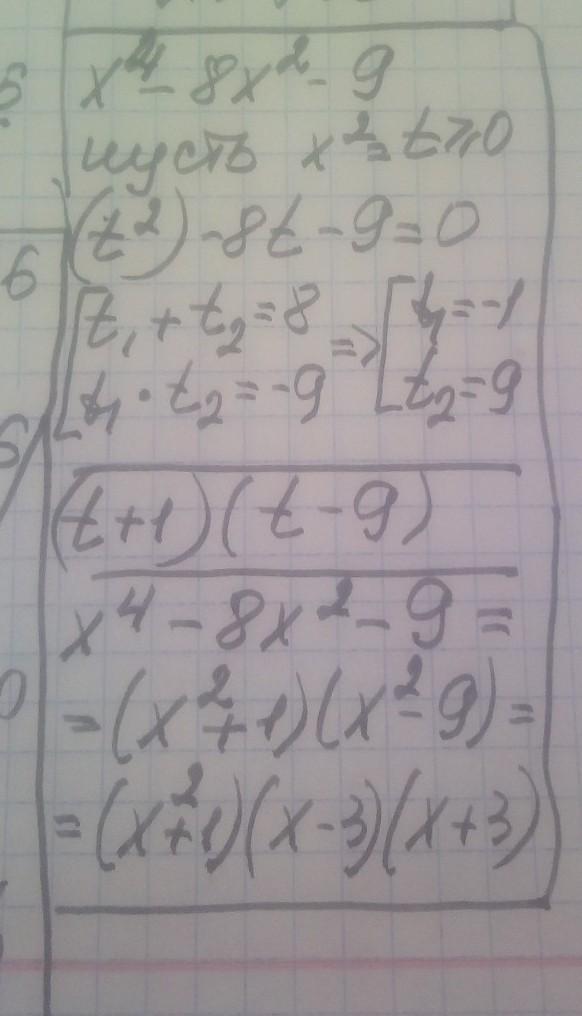 x⁴ - 8x² - 9
пусть x² = t ⩾ 0
(t²) - 8t - 9 = 0
[t₁ + t₂ = 8
t₁ · t₂ = -9 => [t₁ = -1
t₂ = 9
(t + 1)(t - 9)
x⁴ - 8x² - 9 =
= (x² + 1)(x² - 9) =
= (x² + 1)(x - 3)(x + 3)